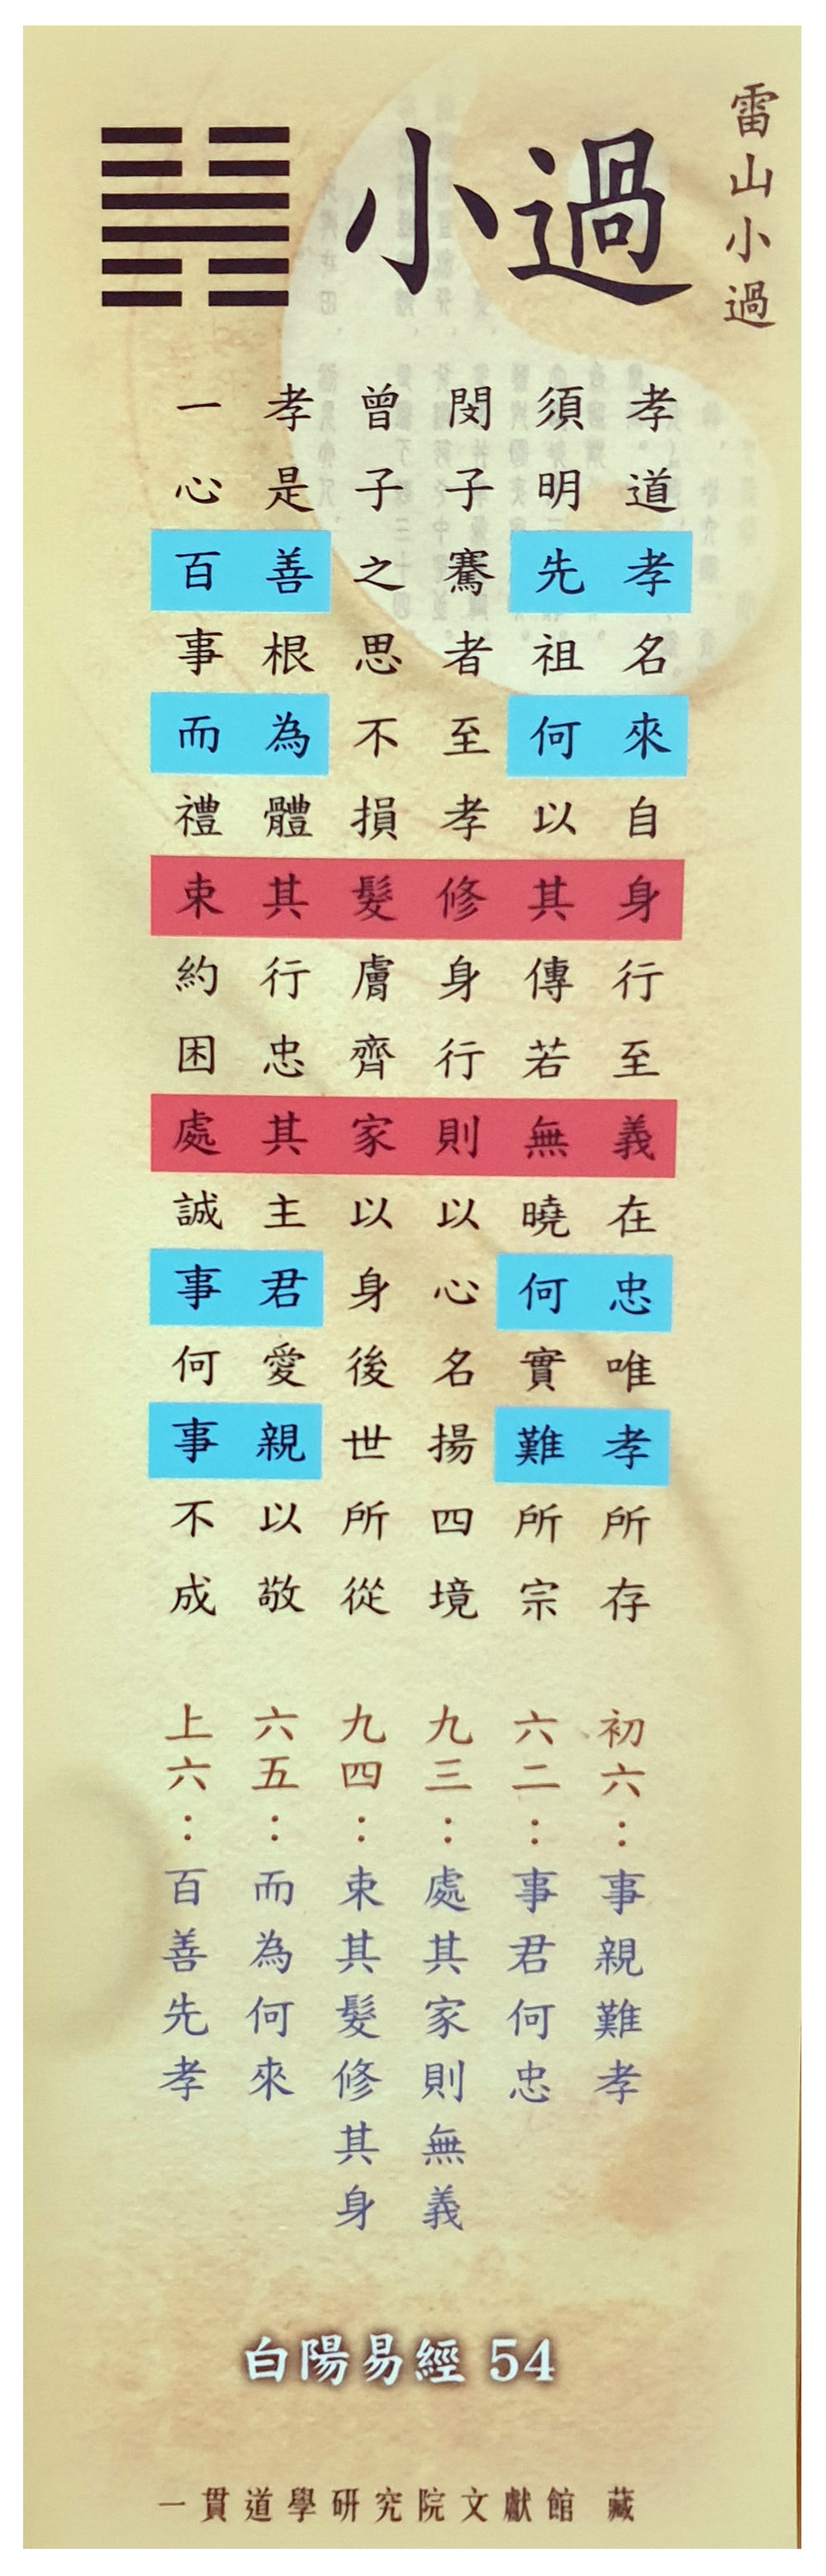 雷山小過
小過
孝道孝名來自身行至義在忠唯孝所存
須明先祖何以其傳若無曉何實難所宗
閔子騫者至孝修身行則以心名揚四境
曾子之思不損髮膚齊家以身後世所從
孝是善根為體其行忠其主君愛親以敬
一心百事而禮束約困處誠事何事不成
初六：事親難孝
六二：事君何忠
九三：處其家則無義
九四：束其髮修其身
六五：而為何來
上六：百善先孝
白陽易經 54
一貫道學研究院文獻館 藏